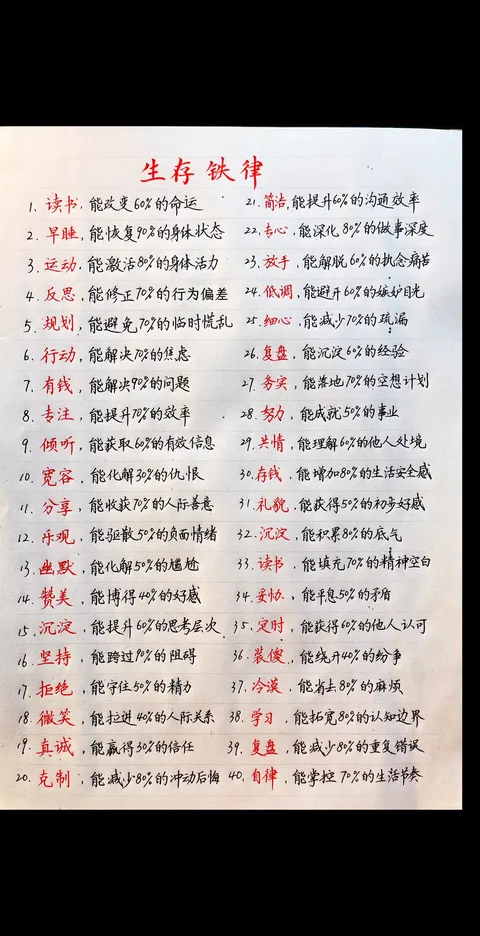 生存铁律
1. 读书，能改变60%的命运
2. 早睡，能恢复90%的身体状态
3. 运动，能激活80%的身体活力
4. 反思，能修正70%的行为偏差
5. 规划，能避免70%的临时慌乱
6. 行动，能解决70%的焦虑
7. 有钱，能解决90%的问题
8. 专注，能提升70%的效率
9. 倾听，能获取60%的有效信息
10. 宽容，能化解30%的仇恨
11. 分享，能收获70%的人际善意
12. 乐观，能驱散50%的负面情绪
13. 幽默，能化解50%的尴尬
14. 赞美，能博得40%的好感
15. 沉淀，能提升60%的思考层次
16. 坚持，能跨过90%的阻碍
17. 拒绝，能守住50%的精力
18. 微笑，能拉进40%的人际关系
19. 真诚，能赢得30%的信任
20. 克制，能减少80%的冲动后悔
21. 简洁，能提升60%的沟通效率
22. 专心，能深化80%的做事深度
23. 放手，能解脱60%的执念痛苦
24. 低调，能避开60%的嫉妒目光
25. 细心，能减少70%的疏漏
26. 复盘，能沉淀60%的经验
27. 务实，能落地70%的空想计划
28. 努力，能成就50%的事业
29. 共情，能理解60%的他人处境
30. 存钱，能增加80%的生活安全感
31. 礼貌，能获得50%的初步好感
32. 沉淀，能积累80%的底气
33. 读书，能填充70%的精神空白
34. 妥协，能平息50%的矛盾
35. 定时，能获得60%的他人认可
36. 装傻，能绕开40%的纷争
37. 冷漠，能省去80%的麻烦
38. 学习，能拓宽80%的认知边界
39. 复盘，能减少80%的重复错误
40. 自律，能掌控70%的生活节奏